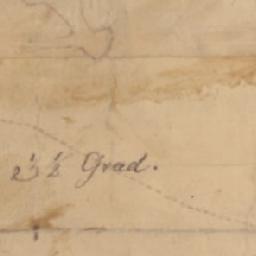 23 ½ Grad.